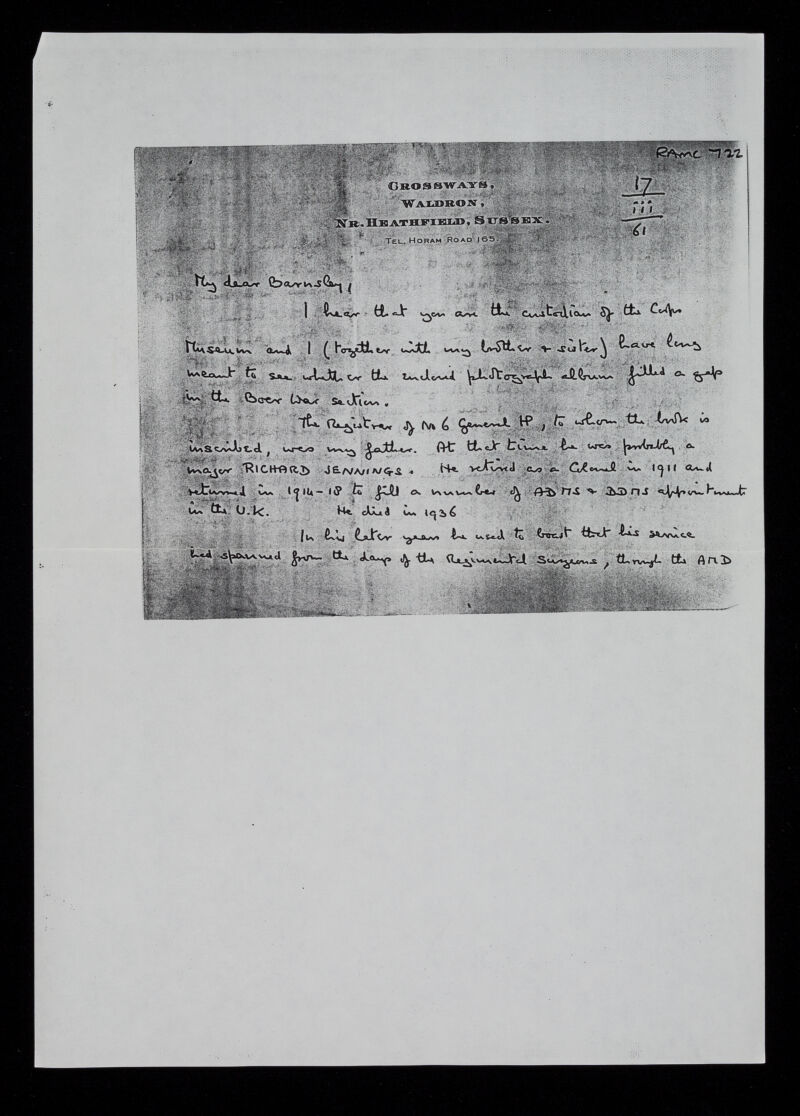 RAMC 722
CROSSWAYS,
WALDRON,
NR. HEATHFIELD, SUSSEX.
TEL. HORAM ROAD 165.
17
iii
61
My dear Barnsley,
I hear that you are the custodian of the Corps
Museum and I (together with my brother & sister) have long
meant to see whether the enclosed photograph album filled a gap
in the Boer War section.
The Registrar of No 6 General HP, to whom the book is
inscribed, was my father. At that time he was probably a
major RICHARD JENNINGS. He retired as a Colonel in 1911 and
returned in 1914-18 to fill a number of ADMS & DDMS appointments
in the U.K. He died in 1936
In his later years he used to boast that his service
had spanned from the days of the Regimental Surgeons, through the AMD